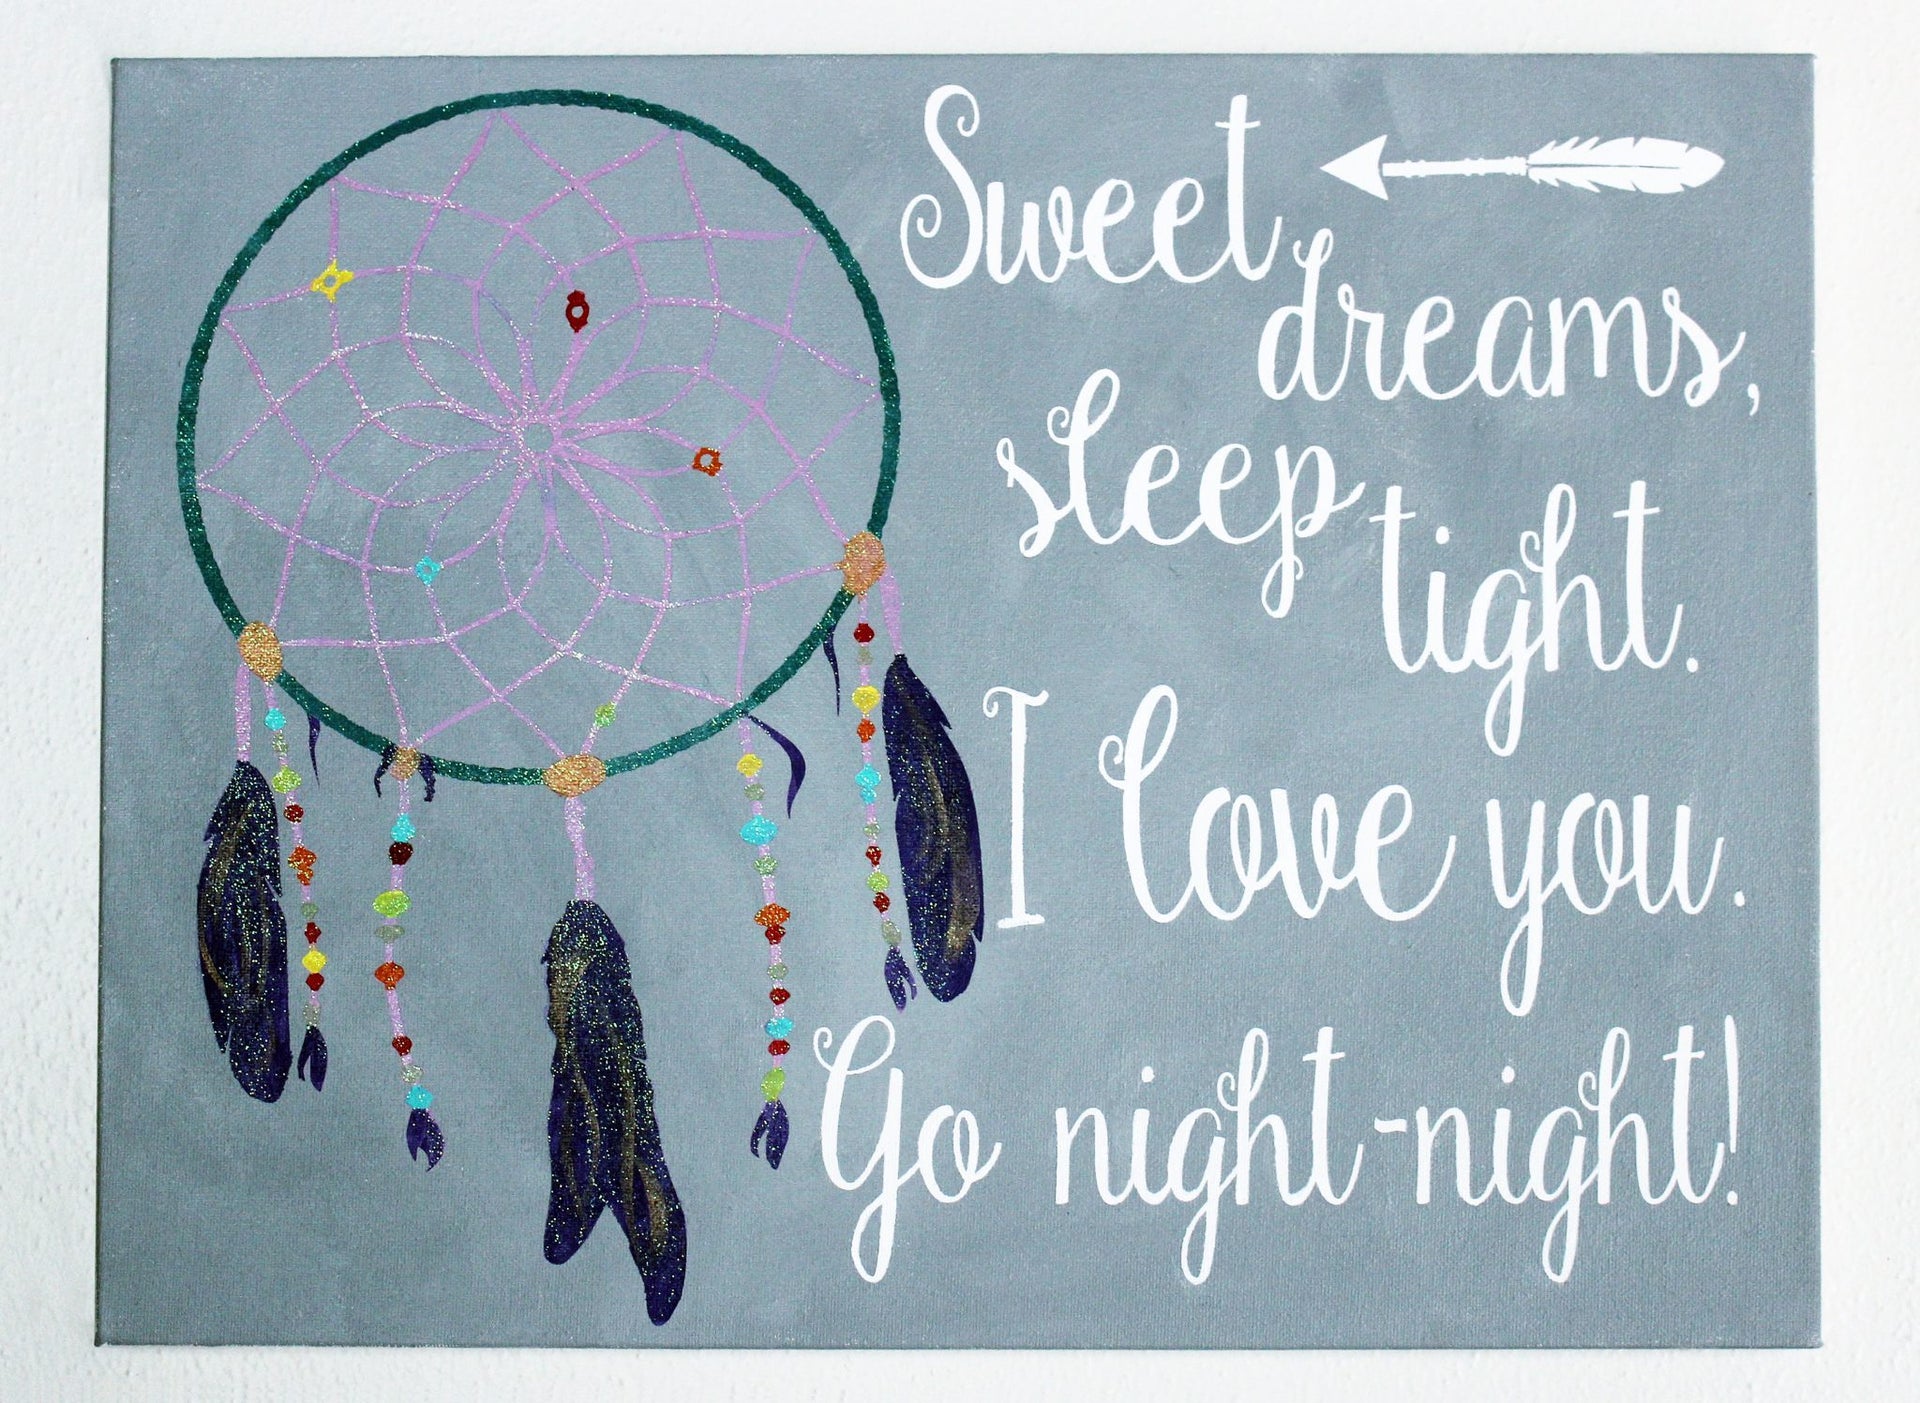 Sweet
dreams,
sleep
tight.
I love you.
Go night-night!